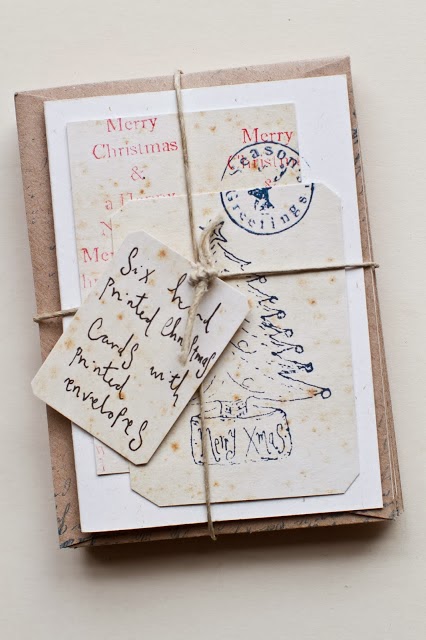 Merry
Christmas
&
a Happy
N
Merry
Merry
Christm
&
Season
Greetings
Six hand
printed Christmas
Cards with
printed
envelopes
Merry Xmas